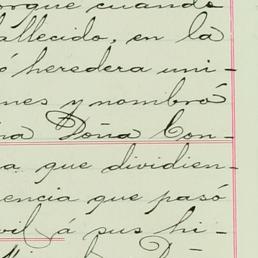 porque cuando
allecido, en la
ó heredera uni-
nes y nombró
na Doña Con-
a que dividien-
encia que pasó
vil á sus hi-